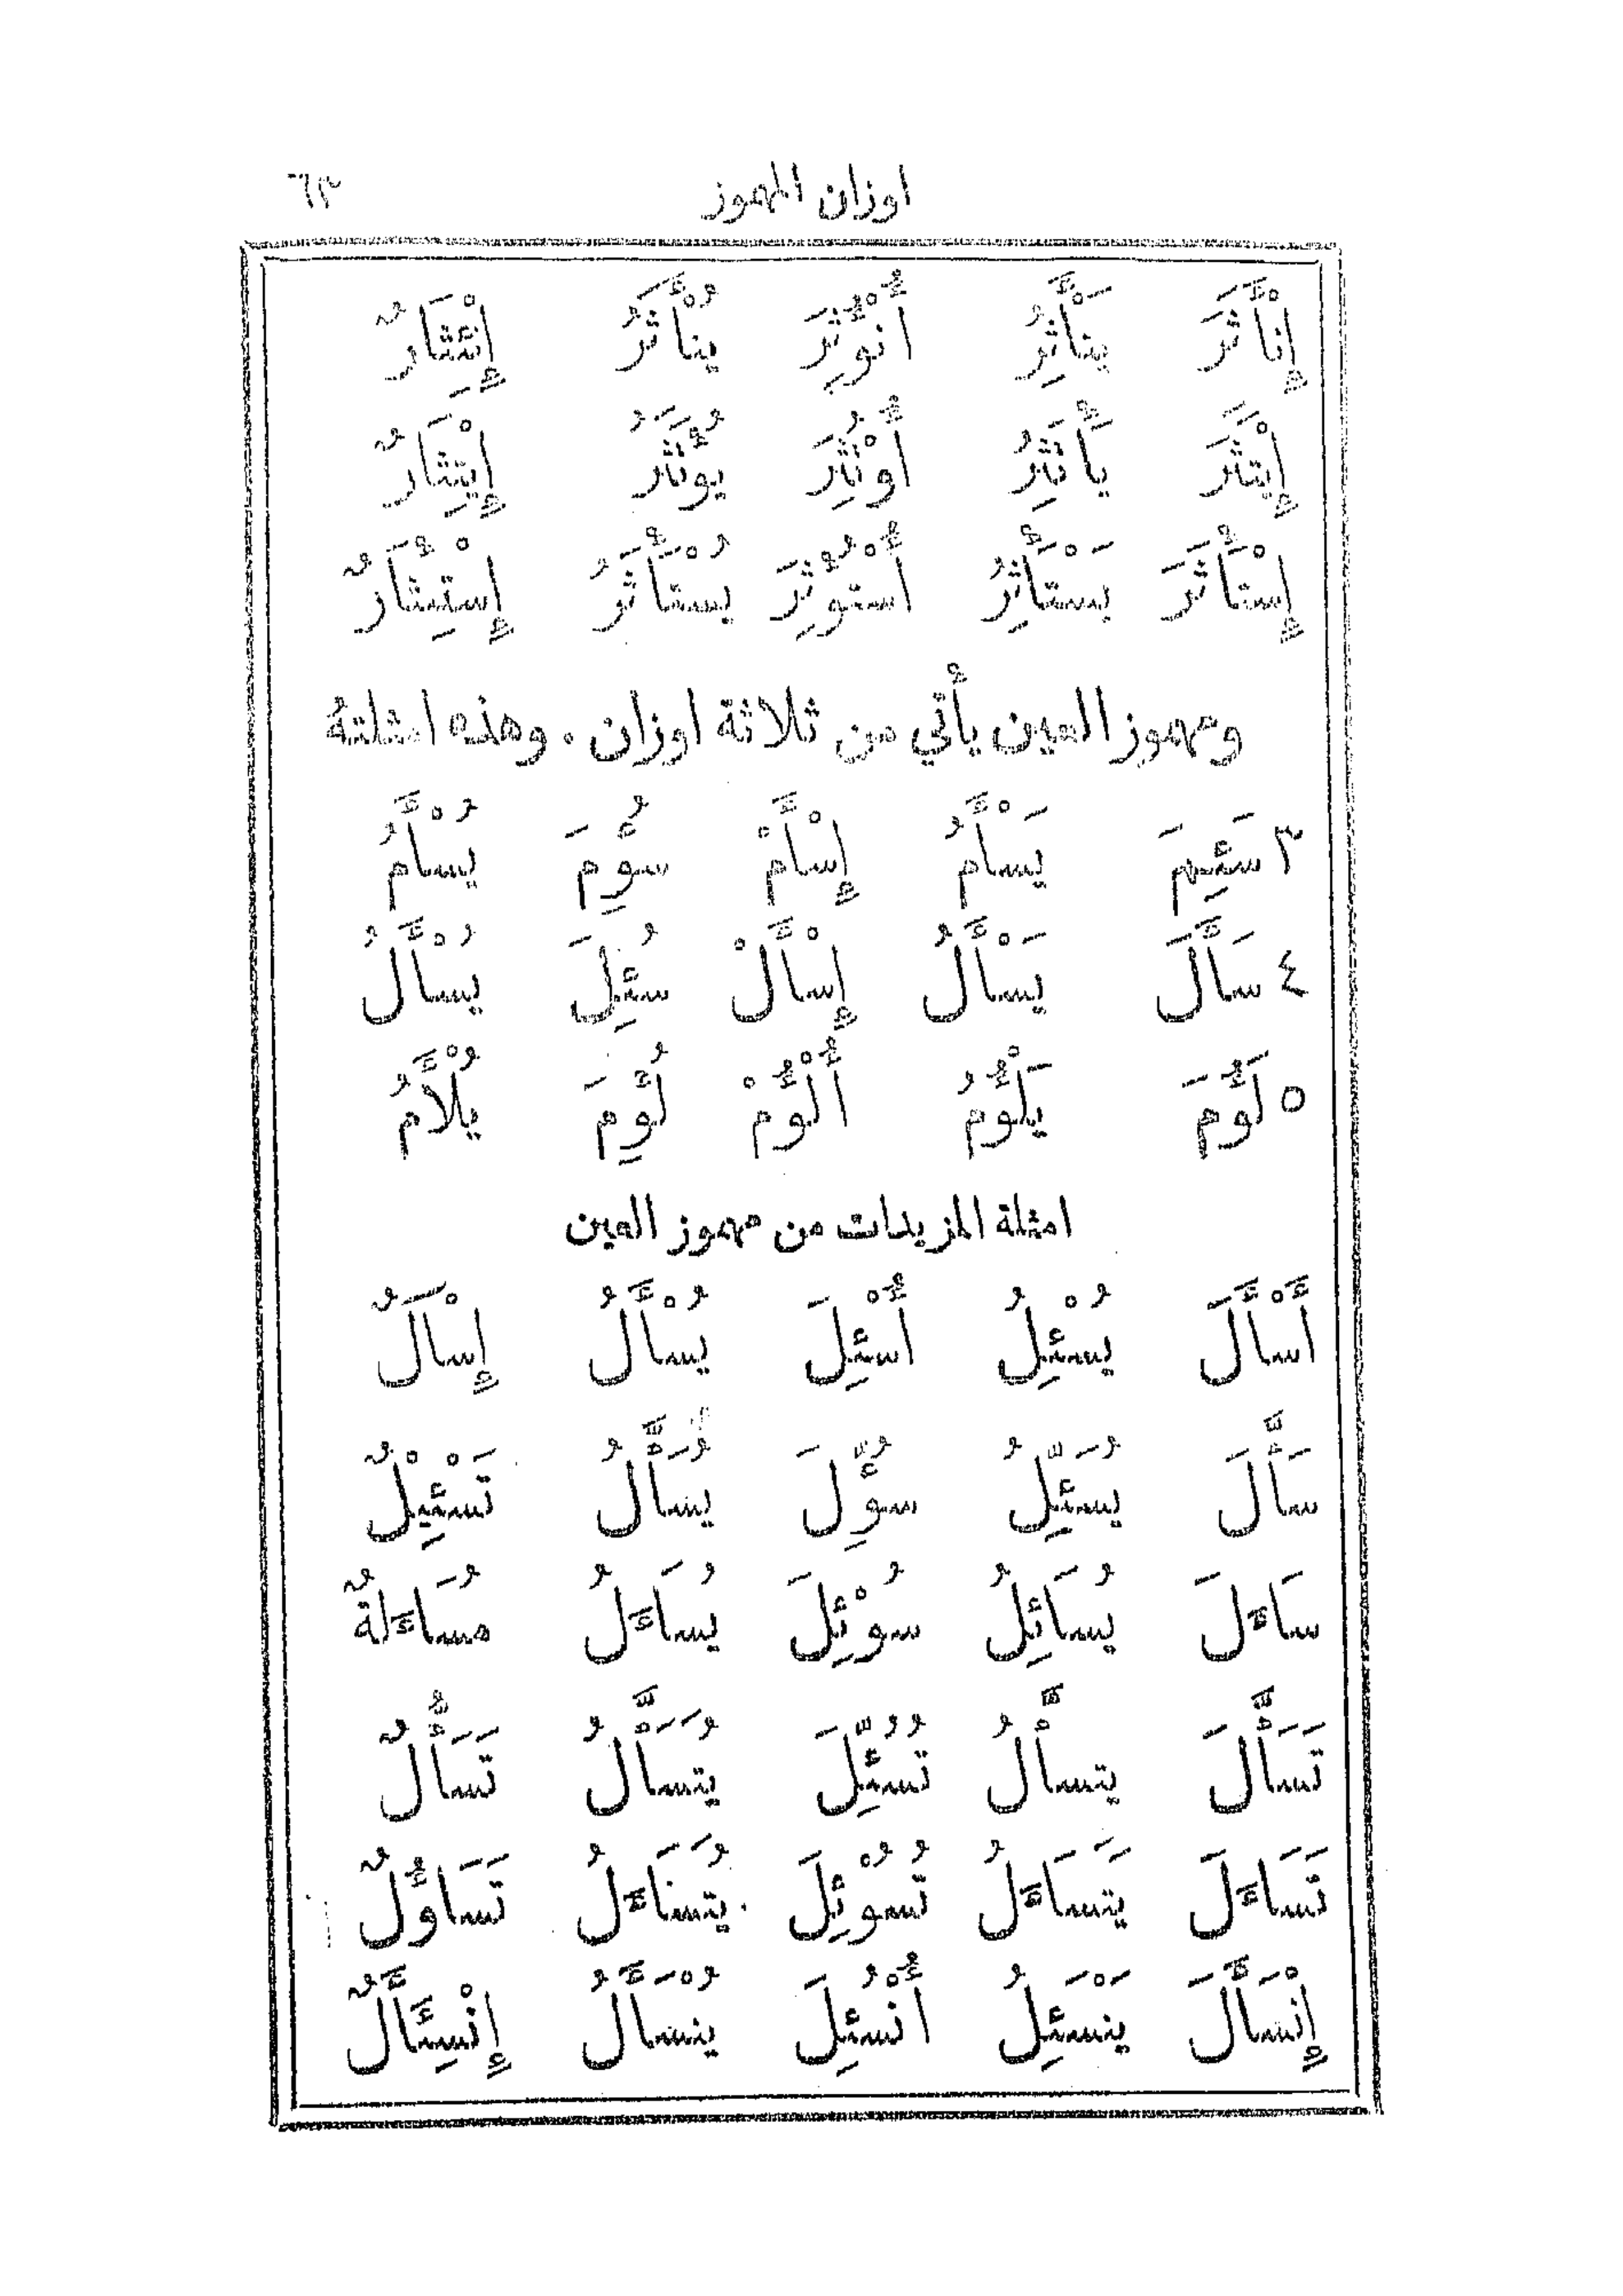 اوزان المهموز ٦٣
إِنْأَثَرَ يَنْأَثِرُ أُنْؤُثِرَ يُنْأَثَرُ إِنْئِثَارٌ
إِيْتَثَرَ يَأْتَثِرُ أُوْتُثِرَ يُؤْتَثَرُ إِيْتِثَارٌ
إِسْتَأْثَرَ يَسْتَأْثِرُ أُسْتُؤْثِرَ يُسْتَأْثَرُ إِسْتِئْثَارٌ
ومهموز العين يأتي من ثلاثة اوزان . وهذه امثلتهُ
٣ سَئِمَ يَسْأَمُ إِسْأَمْ سُؤِمَ يُسْأَمُ
٤ سَأَلَ يَسْأَلُ إِسْأَلْ سُئِلَ يُسْأَلُ
٥ لَؤُمَ يَلْؤُمُ أُلْؤُمْ لُؤِمَ يُلْأَمُ
امثلة المزيدات من مهموز العين
أَسْأَلَ يُسْئِلُ أُسْئِلَ يُسْأَلُ إِسْآلٌ
سَأَّلَ يُسَئِّلُ سُؤِّلَ يُسَأَّلُ تَسْئِيْلٌ
سَاءَلَ يُسَائِلُ سُوْئِلَ يُسَاءَلُ مُسَاءَلَةٌ
تَسَأَّلَ يتسأَّلُ تُسُئِّلَ يُتَسَأَّلُ تَسَأُّلٌ
تَسَاءَلَ يَتَسَاءَلُ تُسُوْئِلَ يُتَسَاءَلُ تَسَاؤُلٌ
إِنْسَأَلَ يَنْسَئِلُ أُنْسُئِلَ يُنْسَأَلُ إِنْسِئَالٌ